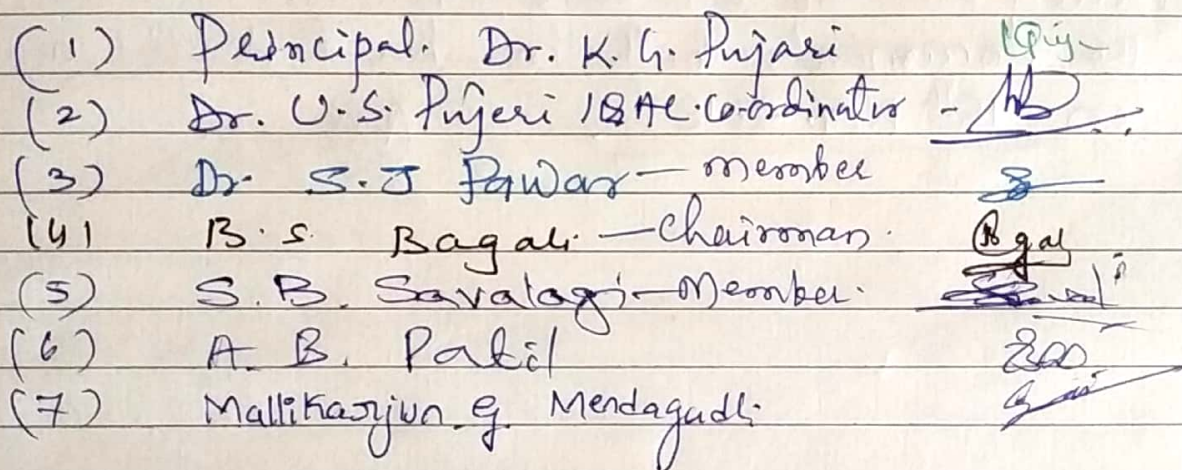 (1) Principal. Dr. K. G. Pujari
(2) Dr. U.S. Pujeri IQAC Co-ordinator -
(3) Dr. S.J Pawar - member
(4) B.S. Bagali - Chairman.
(5) S.B. Savalagi - Member.
(6) A. B. Patil
(7) Mallikarjun. g. Mendagudli